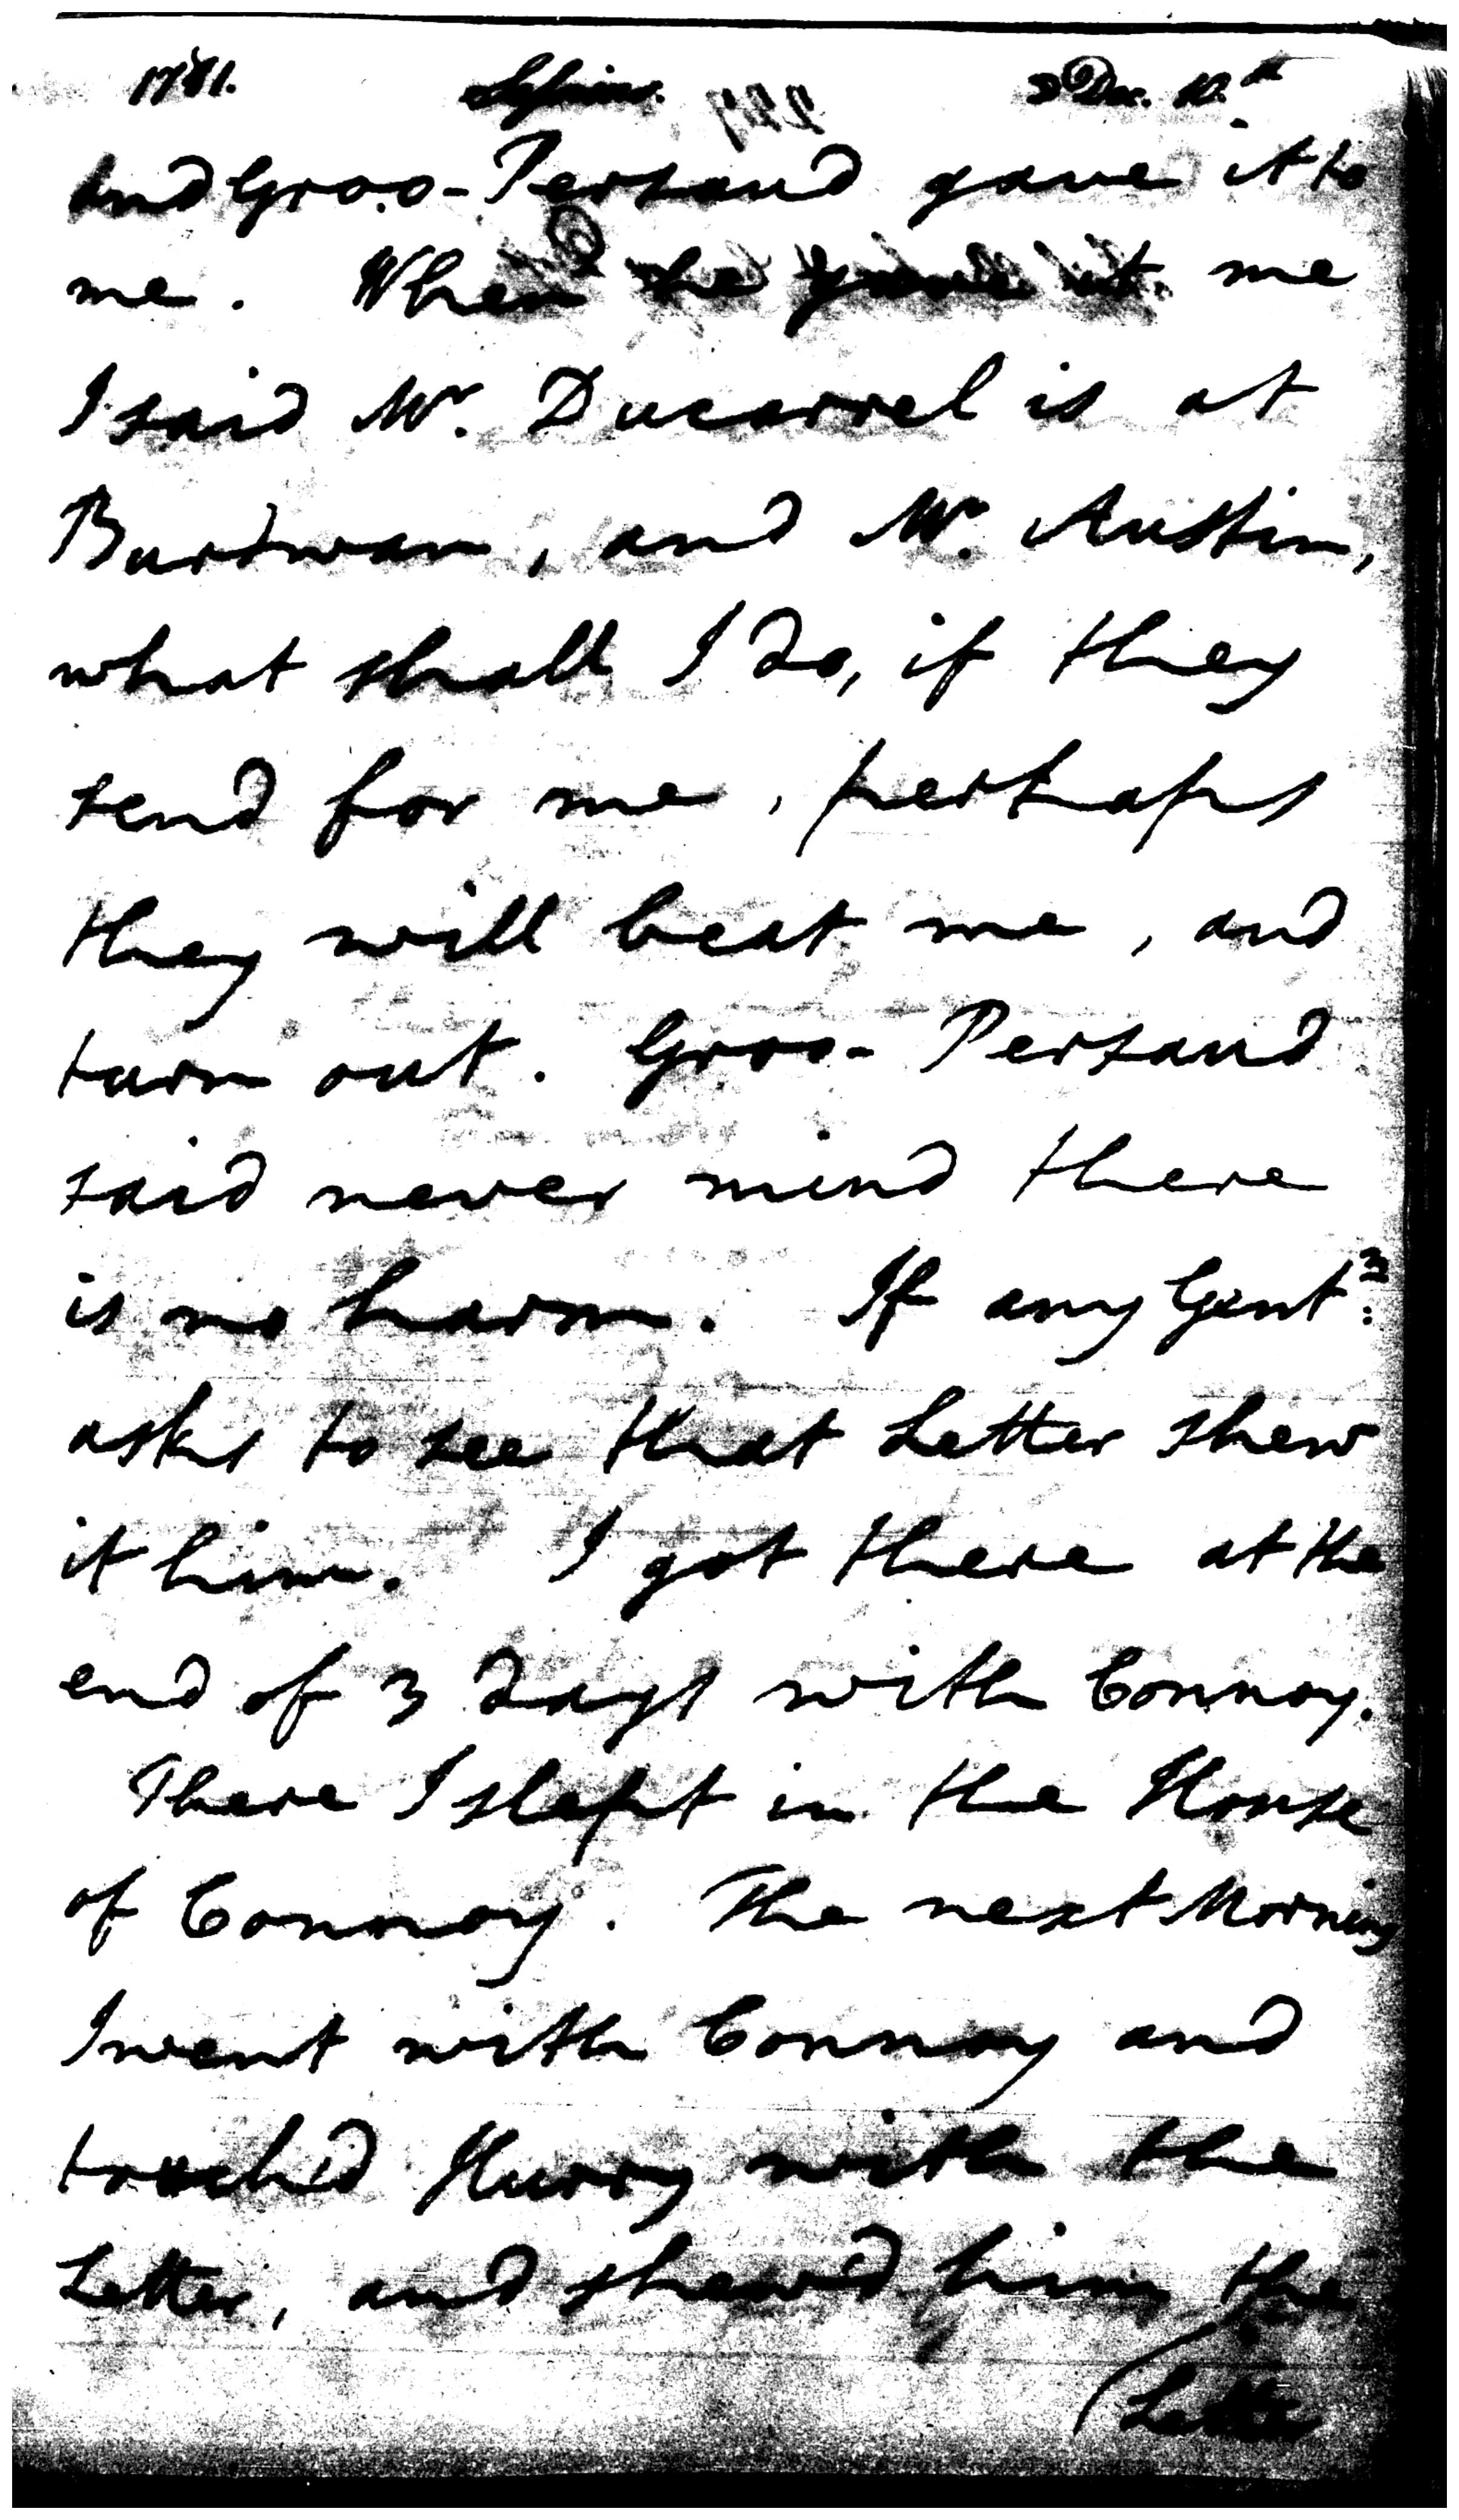 1781. Sessions. Dec. 10.th
and Groo-Persaud gave it to
me. When he gave it me
I said Mr. Ducarrel is at
Burdwan, and Mr. Austin,
what shall I do, if they
send for me, perhaps
they will beat me, and
turn out. Groo-Persaud
said never mind there
is no harm. If any Gent:n
asks to see that Letter shew
it him. I got there at the
end of 3 days with Connoy.
There I slept in the House
of Connoy. The next Morning
I went with Connoy and
touch'd Hurry with the
Letter, and shew'd him the
(Letter